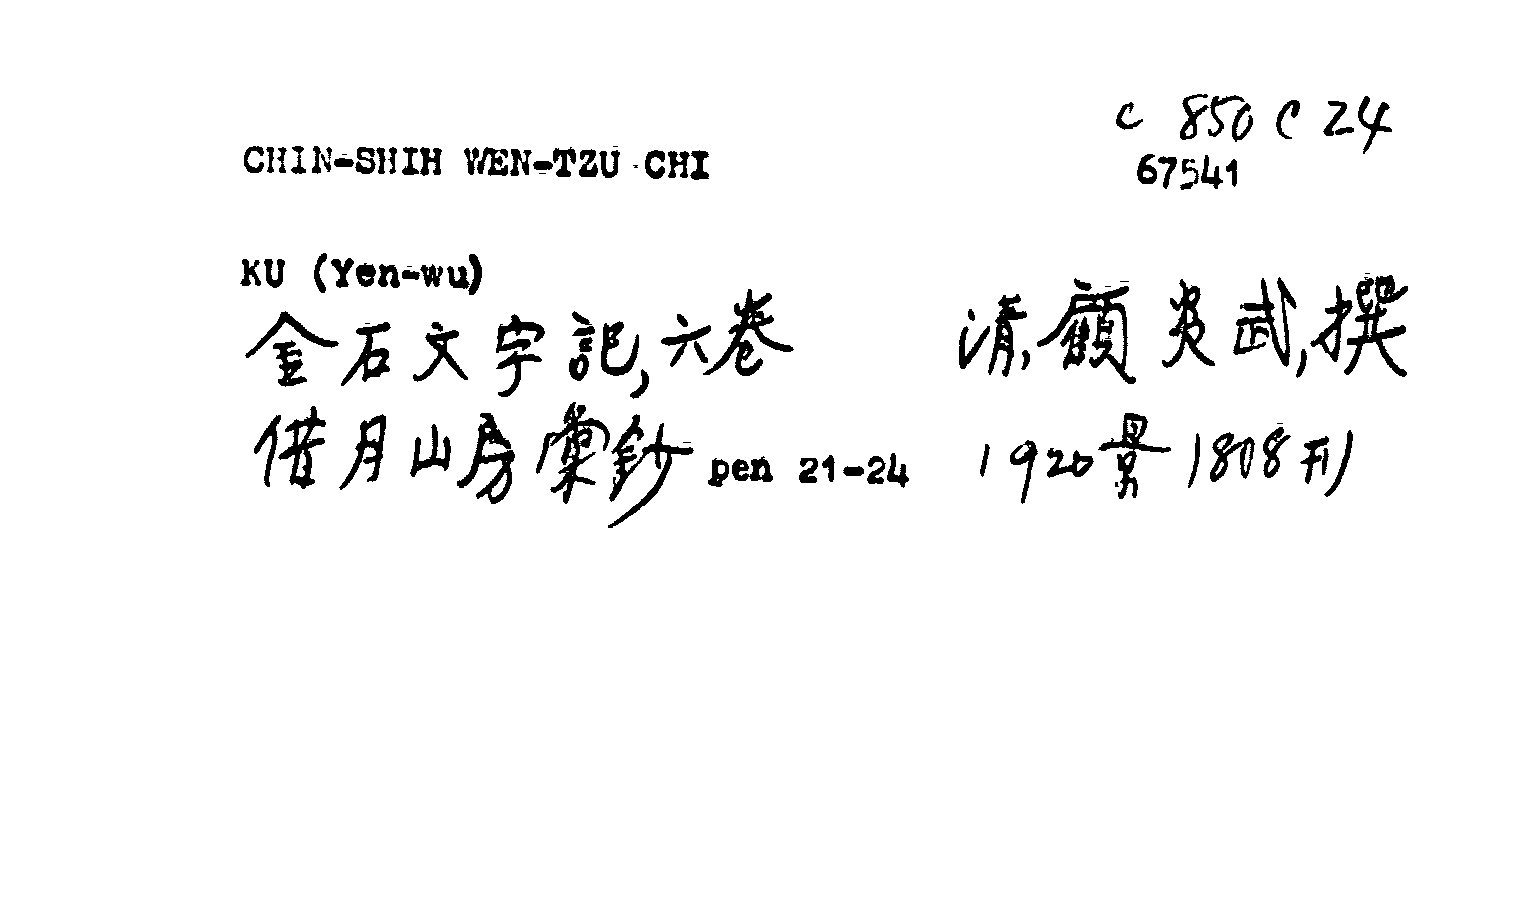 C 850 C 24
CHIN-SHIH WEN-TZU CHI
67541
KU (Yen-wu)
金石文字記,六卷 清,顧炎武,撰
借月山房彙鈔 pen 21-24 1920景1808刊